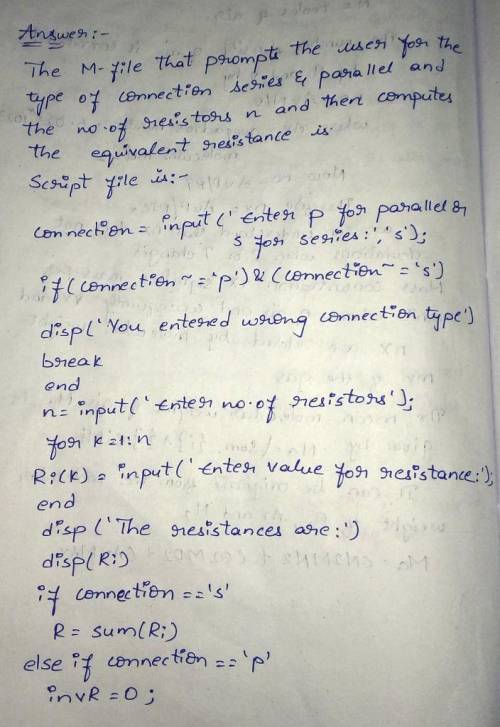 Answer:-
The M-file that prompts the user for the
type of connection series & parallel and
the no.of resistors n and then computes
the equivalent resistance is.
Script file is:-
connection = input (' Enter p for parallel or
s for series:','s');
if (connection ~= 'p') & (connection ~= 's')
disp('You entered wrong connection type')
break
end
n= input (' Enter no.of resistors');
for k=1:n
Ri(k) = input('Enter value for resistance:');
end
disp ('The resistances are:')
disp(Ri)
if connection == 's'
R = sum(Ri)
else if connection == 'p'
invR = 0 ;